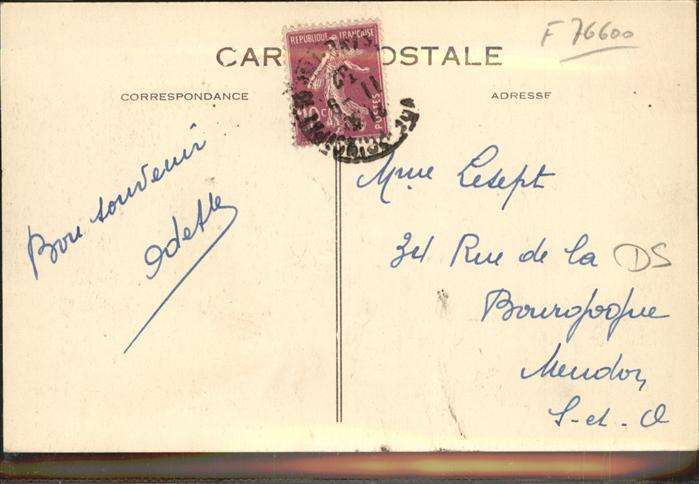 F 76600
CARTE POSTALE
REPUBLIQUE FRANÇAISE
POSTES
CORRESPONDANCE
ADRESSE
Bon souvenir
Odette
Mme Lesept
34 Rue de la
DS
Bourgogne
Meudon
S-et-O